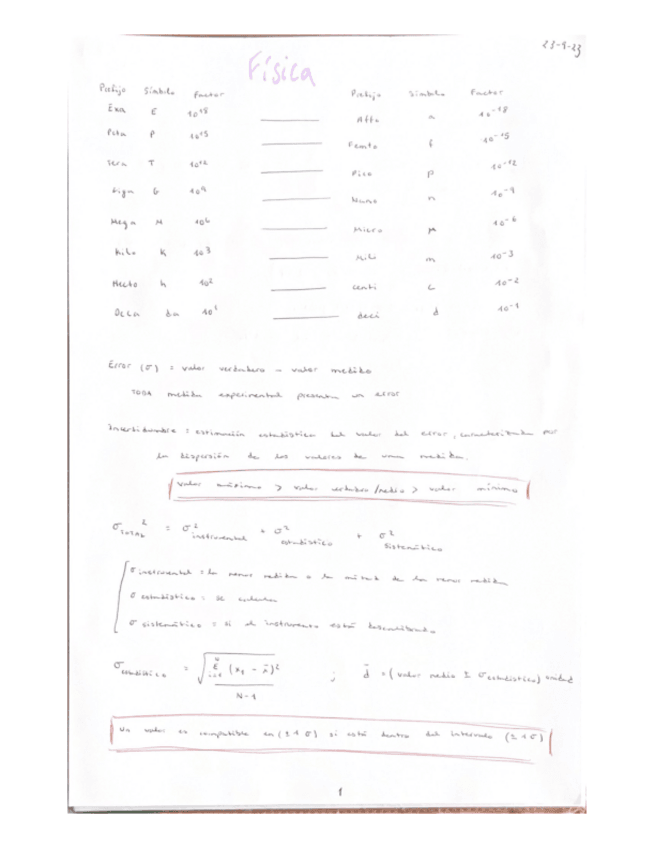 23-9-23
Física
Prefijo Símbolo Factor Prefijo Símbolo Factor
Exa E 10^18 Atto a 10^-18
Peta P 10^15 Femto f 10^-15
Tera T 10^12 Pico p 10^-12
Giga G 10^9 Nano n 10^-9
Mega M 10^6 Micro μ 10^-6
Kilo K 10^3 Mili m 10^-3
Hecto h 10^2 centi c 10^-2
Deca da 10^1 deci d 10^-1
Error (σ) = valor verdadero - valor medido
TODA medida experimental presenta un error
Incertidumbre = estimación estadística del valor del error, caracterizada por
la dispersión de los valores de una medida.
valor máximo > valor verdadero/medio > valor mínimo
σ_TOTAL^2 = σ^2 instrumental + σ^2 estadístico + σ^2 sistemático
σ instrumental = la menor medida o la mitad de la menor medida
σ estadístico : se calcula
σ sistemático = si el instrumento está descalibrado
σ estadístico = √(Σ (x_1 - x̄)^2 / N-1) ; d̄ = (valor medio ± σ estadístico) unidad
Un valor es compatible en (±1σ) si está dentro del intervalo (±1σ)
1